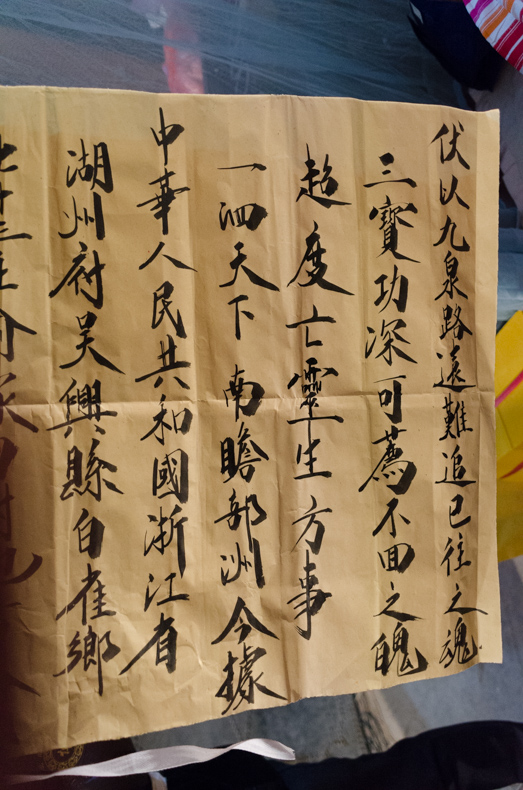 伏以九泉路遠難追已往之魂
三寶功深可薦不回之魄
超度亡靈生方事
一泗天下南瞻部洲今據
中華人民共和國浙江省
湖州府吳興縣白雀鄉